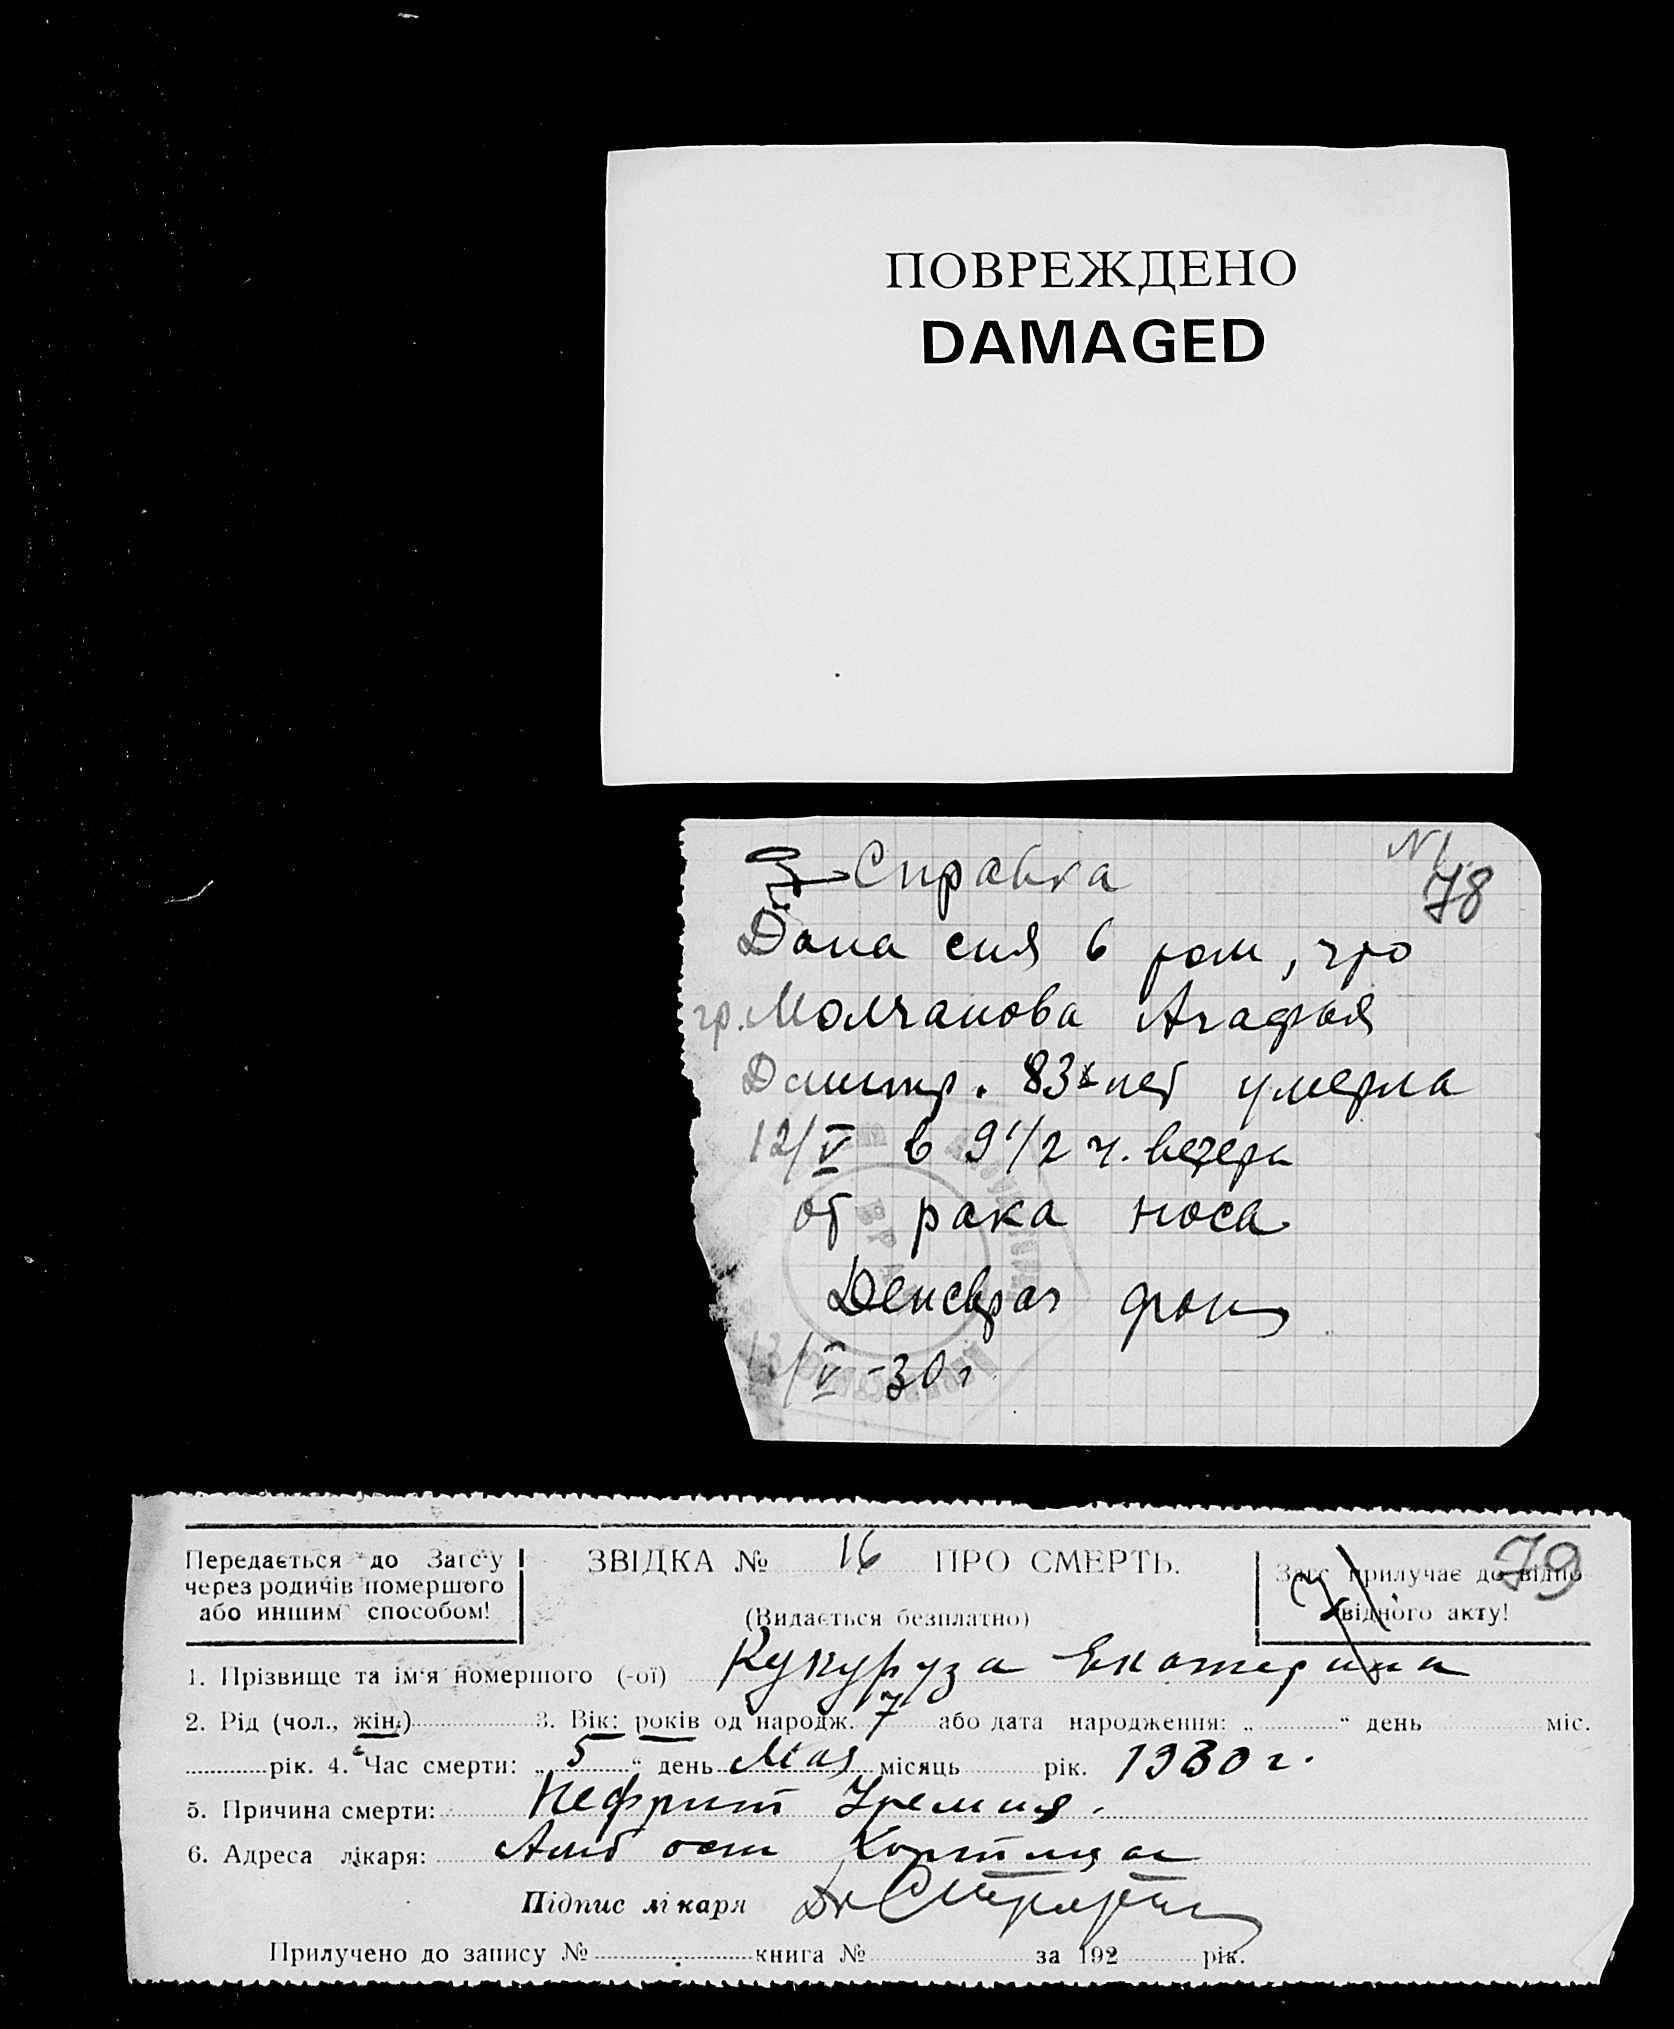 ПОВРЕЖДЕНО
DAMAGED
N 1
78
Справка
Дана сия в том, что
гр. Молчанова Агафья
Дмитр. 83х лет умерла
12/V в 9 1/2 ч. вечера
от рака носа
/V -30 г
79
Передається до Загс'у
через родичів помершого
або иншим способом!
ЗВІДКА № 16 ПРО СМЕРТЬ.
(Видається безплатно)
Загс прилучає до відпо
відного акту!
1. Прізвище та ім'я помершого (-ої) Кукуруза Екатерина
2. Рід (чол., жін.) 3. Вік: років од народж. 7 або дата народження: „ “ день міс.
рік. 4. Час смерти: „ 5 “ день Мая місяць рік. 1930 г.
5. Причина смерти: Нефрит Уремия.
6. Адреса лікаря: Амб ост Хортица
Підпис лікаря Dr
Прилучено до запису № книга № за 192 рік.